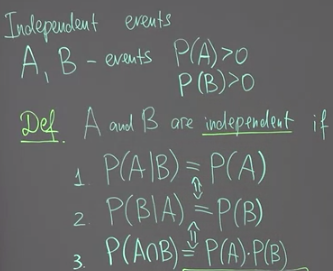 Independent events
A, B - events P(A)>0
P(B)>0
Def. A and B are independent if
1. P(A|B) = P(A)
⇕
2. P(B|A) = P(B)
⇕
3. P(A∩B) = P(A)·P(B)